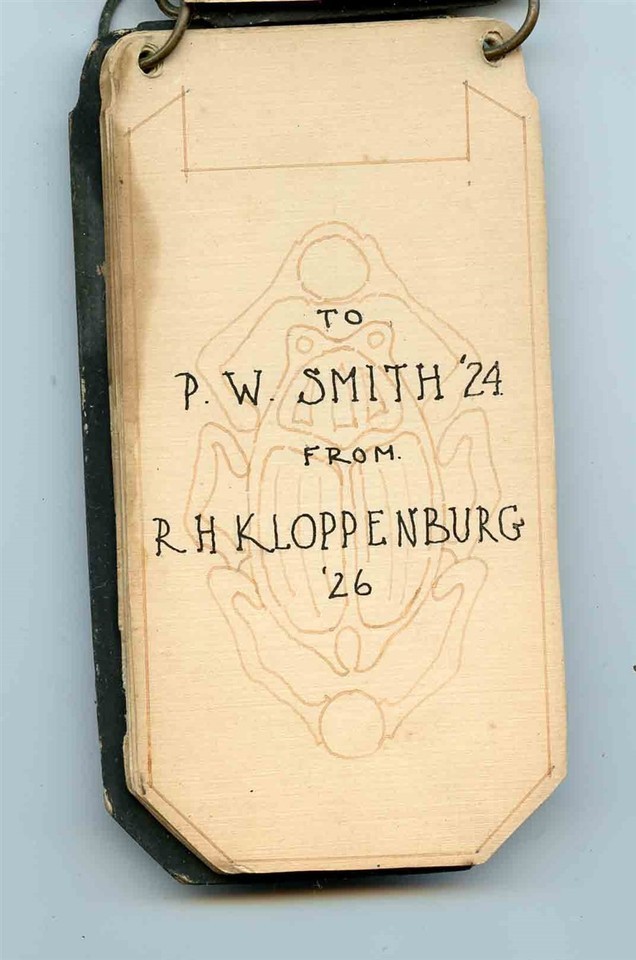 TO
P. W. SMITH '24
FROM.
R H KLOPPENBURG
'26